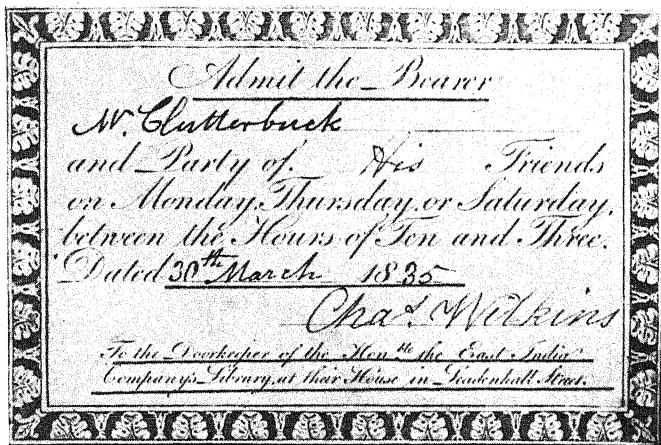 Admit the Bearer
Mr. Clutterbuck
and Party of His Friends
on Monday, Thursday, or Saturday,
between the Hours of Ten and Three.
Dated 30th March 1835
Chas. Wilkins
To the Doorkeeper of the Honble the East India
Company's Library, at their House in Leadenhall Street.